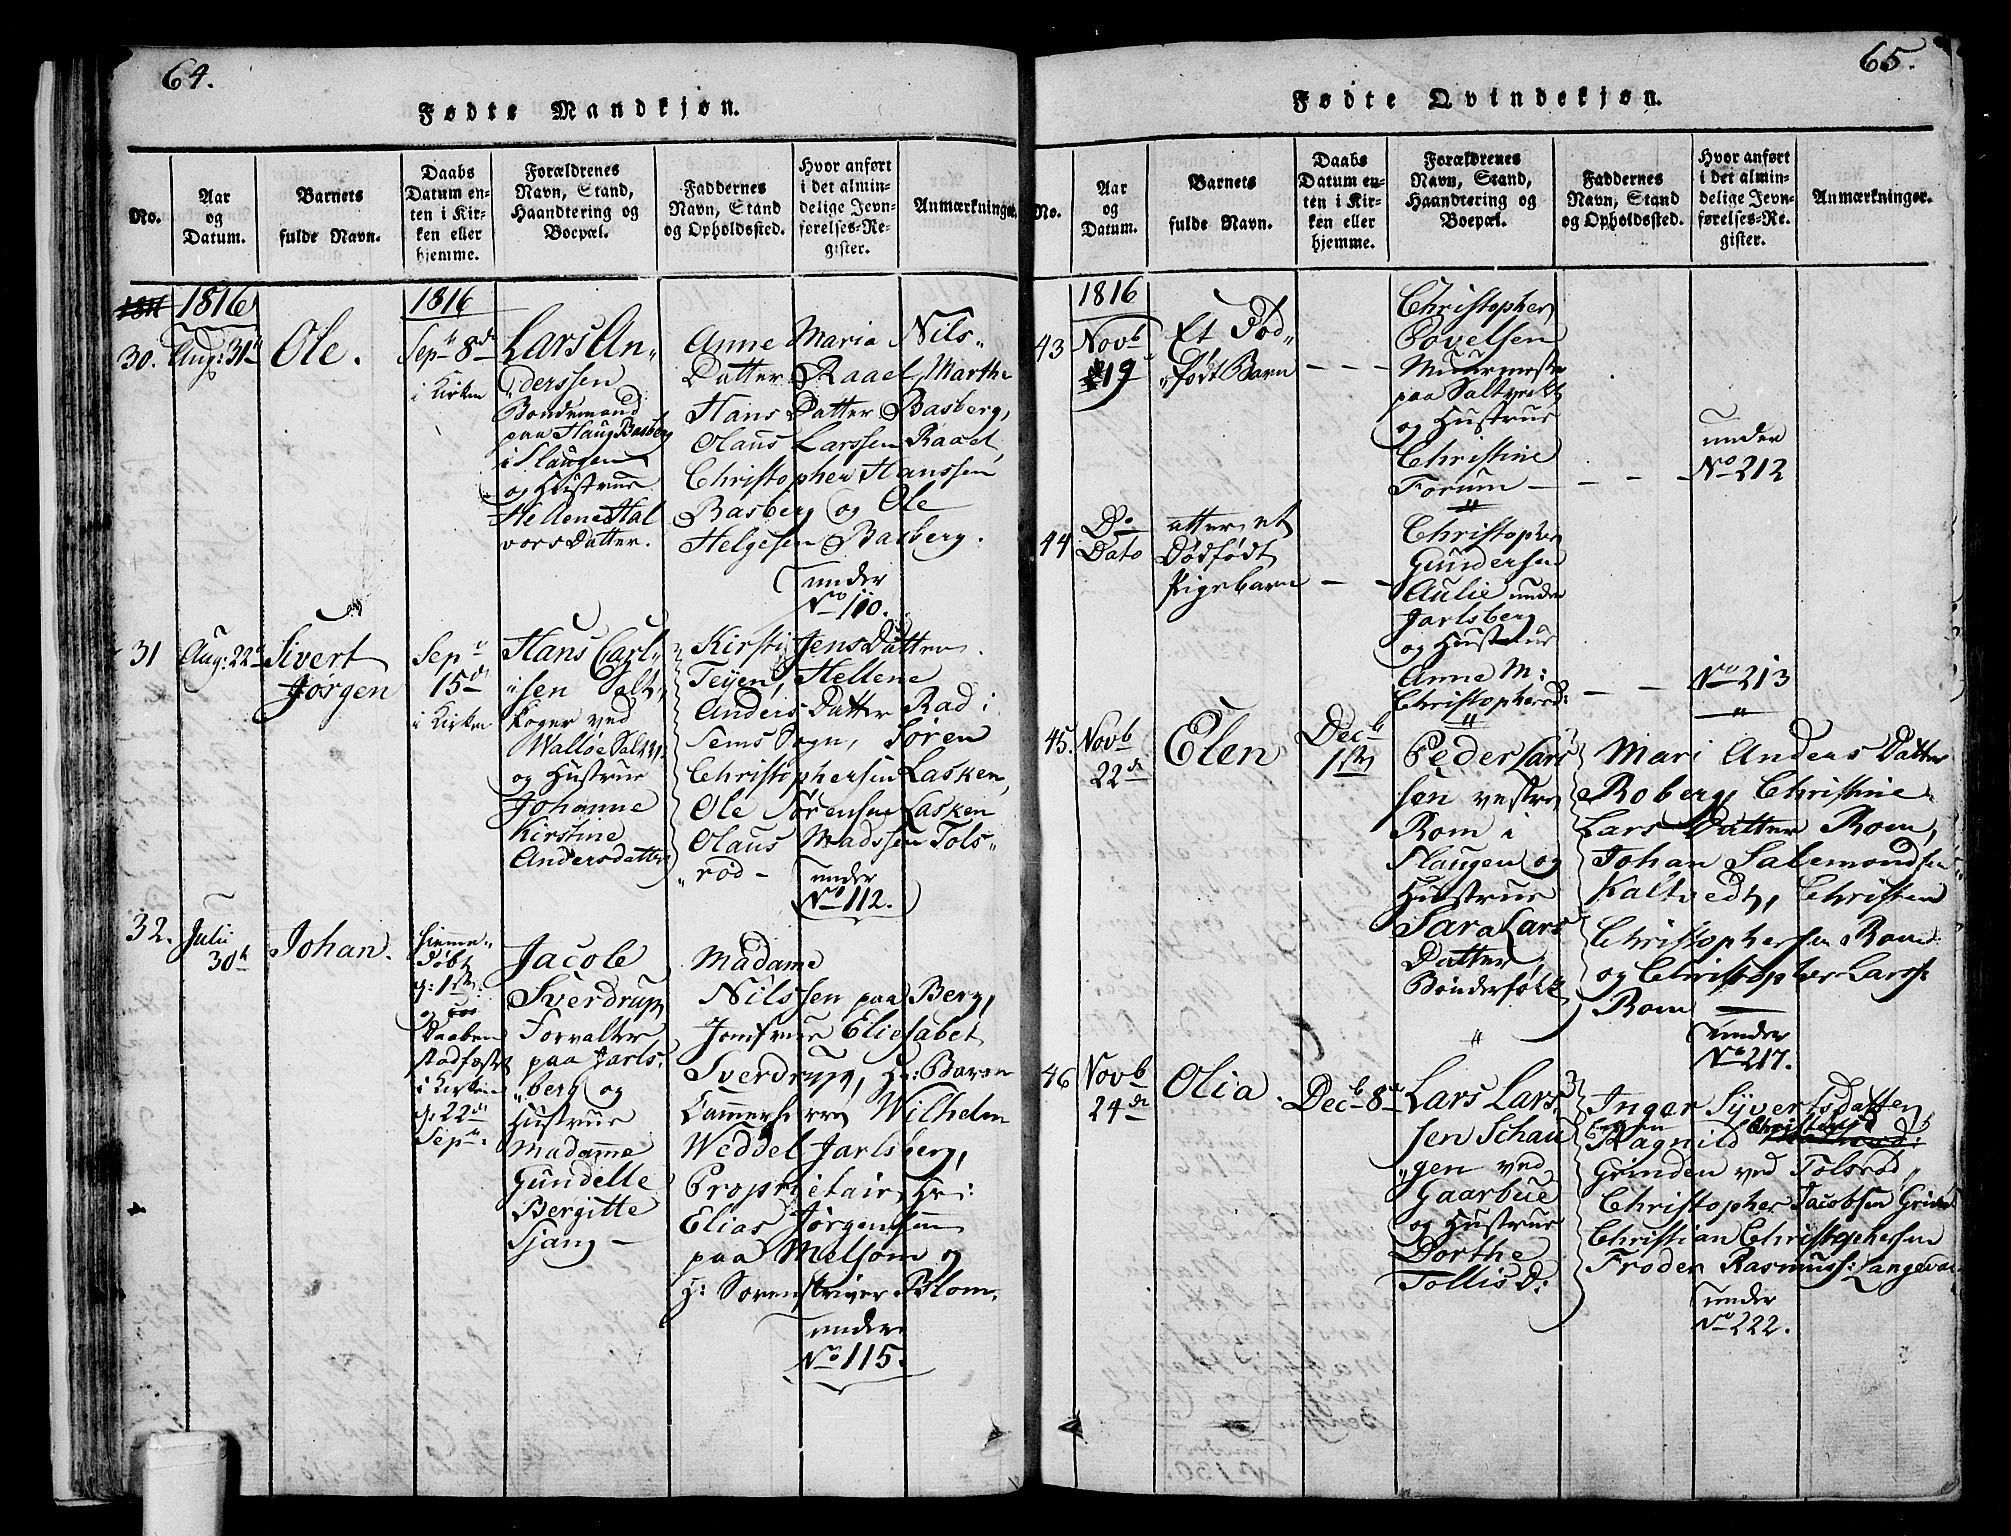 64.
Fødte Mandkjøn.
No.
Aar
og
Datum.
Barnets
fulde Navn.
Daabs
Datum en-
ten i Kir-
ken eller
hjemme.
Forældrenes
Navn, Stand,
Haandtering og
Boepæl.
Faddernes
Navn, Stand
og Opholdssted.
Hvor anført
i det almin-
delige Jevn-
førelses-Re-
gister.
Anmærkninger.
1816
1816
30.
Aug: 31te
Ole.
Sept 8de
i Kirken
Lars An-
derssen
Bondemand
paa Haug Basberg
i Slaugen
og Hustrue
Hellene Hal
vors Datter.
Anne Maria Nils-
Datter Raael, Marthe
Hans Datter Basberg,
Olaus Larssen Raael,
Christopher Hanssen
Basberg og Ole
Helgesen Basberg.
under
No 110.
31
Aug: 22
Sivert
Jørgen
Sep
15de
i Kirken
Hans Carl-
sen Salt-
koger ved
Walløe Saltv.
og Hustrue
Johanne
Kirstine
Andersdatter
Kirsti Jens Datter
Teijen, Hellene
Anders Datter Rad i
Sems Sogn, Søren
Christophersen Lasken,
Ole Sørensen Lasken
Olaus Madssen Tols-
rød -
under
No 112.
32.
Julii
30te
Johan.
Hjemme-
døbt
d: 1ste
og
Daaben
stadfæstet
i Kirken
d. 22de
Sept.
Jacob
Sverdrup
Forvalter
paa Jarls-
berg og
Hustrue
Madamme
Gundelle
Bergitte
Sjang -
Madame
Nilssen paa Berg,
Jomfrue Eliesabet
Sverdrup, Hr: Baron
Cammerherre Wilhelm
Weddel Jarlsberg,
Proprietair Hr:
Elias Jørgensen
paa Melsom og
H: Sorenskriver Blom.
under
No 115.
65.
Fødte Qvindekjøn.
No.
Aar
og
Datum.
Barnets
fulde Navn.
Daabs
Datum en-
ten i Kir-
ken eller
hjemme.
Forældrenes
Navn, Stand,
Haandtering og
Boepæl.
Faddernes
Navn, Stand
og Opholdssted.
Hvor anført
i det almin-
delige Jevn-
førelses-Re-
gister.
Anmærkninger.
1816
43
Novb
19
Et Død-
født Barn
Christopher
Povelsen
Muurmester
paa Saltverket
og Hustrue
Christine
Forum -
under
No 212
44
Do
Dato
atter et
Dødfødt
Pigebarn
Christopher
Gundersen
Aulie under
Jarlsberg
og Hustrue
Anne M:
Christophersd:
No 213
45.
Novb
22de
Elen
Decb
1ste
Peder Lars
sen vestre
Rom i
Slaugen og
Hustrue
Sara Lars
Datter,
Bønderfolk
Mari Anders Datter
Roberg, Christine
Lars Datter Rom,
Johan Salemondsen
Kaltvedt, Christen
Christophersen Rom
og Christopher Larss:
Rom -
under
No 217.
46
Novb
24de
Olia.
Decb 8de
Lars Lars-
sen Schau
gen ved
Gaarbue
og Hustrue
Dorthe
Tollis D.
Inger Syvertsdatter
Ragnild Christensd
Grinden ved Tolsrød,
Christopher Jacobsen
Christian Christophersen
Froder Rasmuss:
under
No 222.